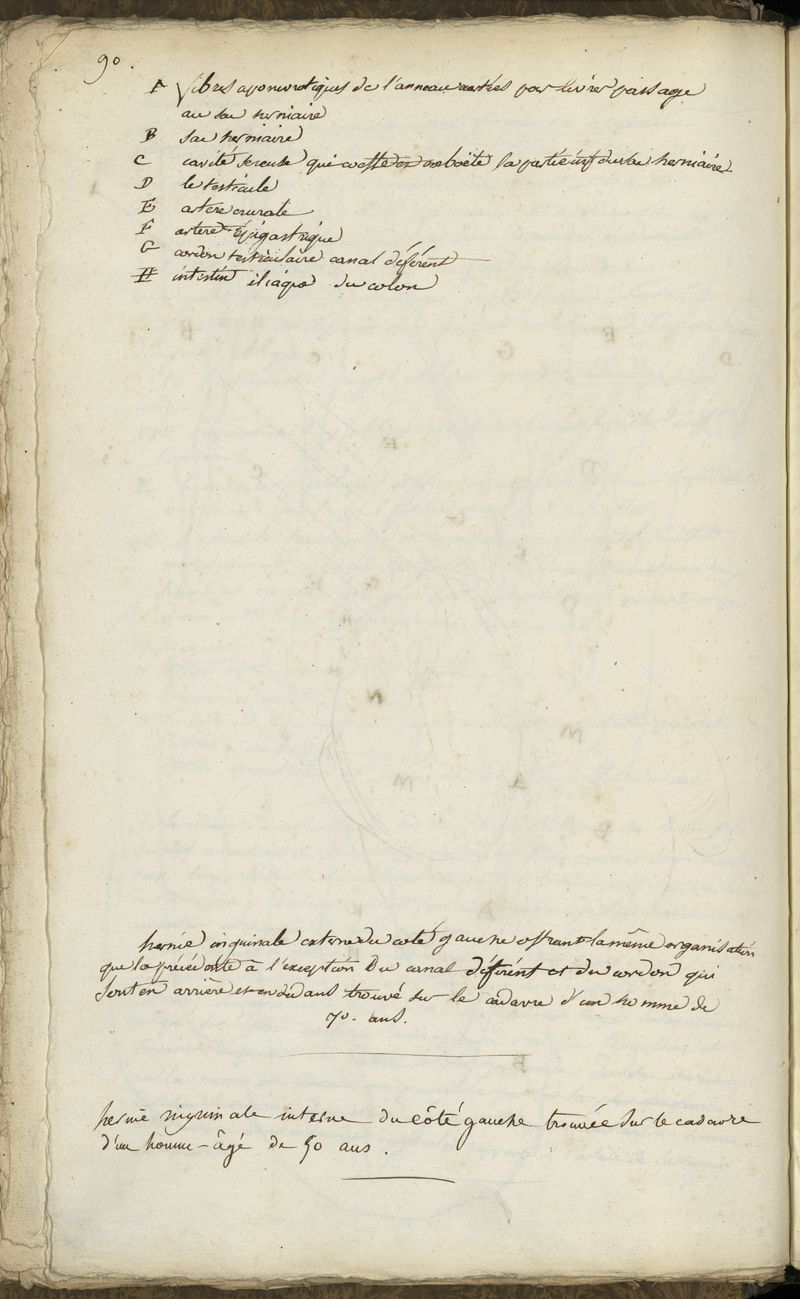 90.
A fibres aponevrotiques de l'anneau cartées pour livrer passage
au sac herniaire
B sac herniaire
C cavité sereuse qui emboëte la partie inf du sac herniaire
D le testicule
E artere crurale
F artere épigastrique
G cordon testiculaire canal déférent
H intestin iliaque du colon
hernie inguinale externe du coté gauche offrant la même organisation
que la précédente à l'exception Du canal déférent et du cordon qui
sont en arrière et en dédans trouvé sur le cadavre d'un homme de
70. ans.
hernie inguinale interne du côté gauche trouvée sur le cadavre
d'un homme âgé de 50 ans.